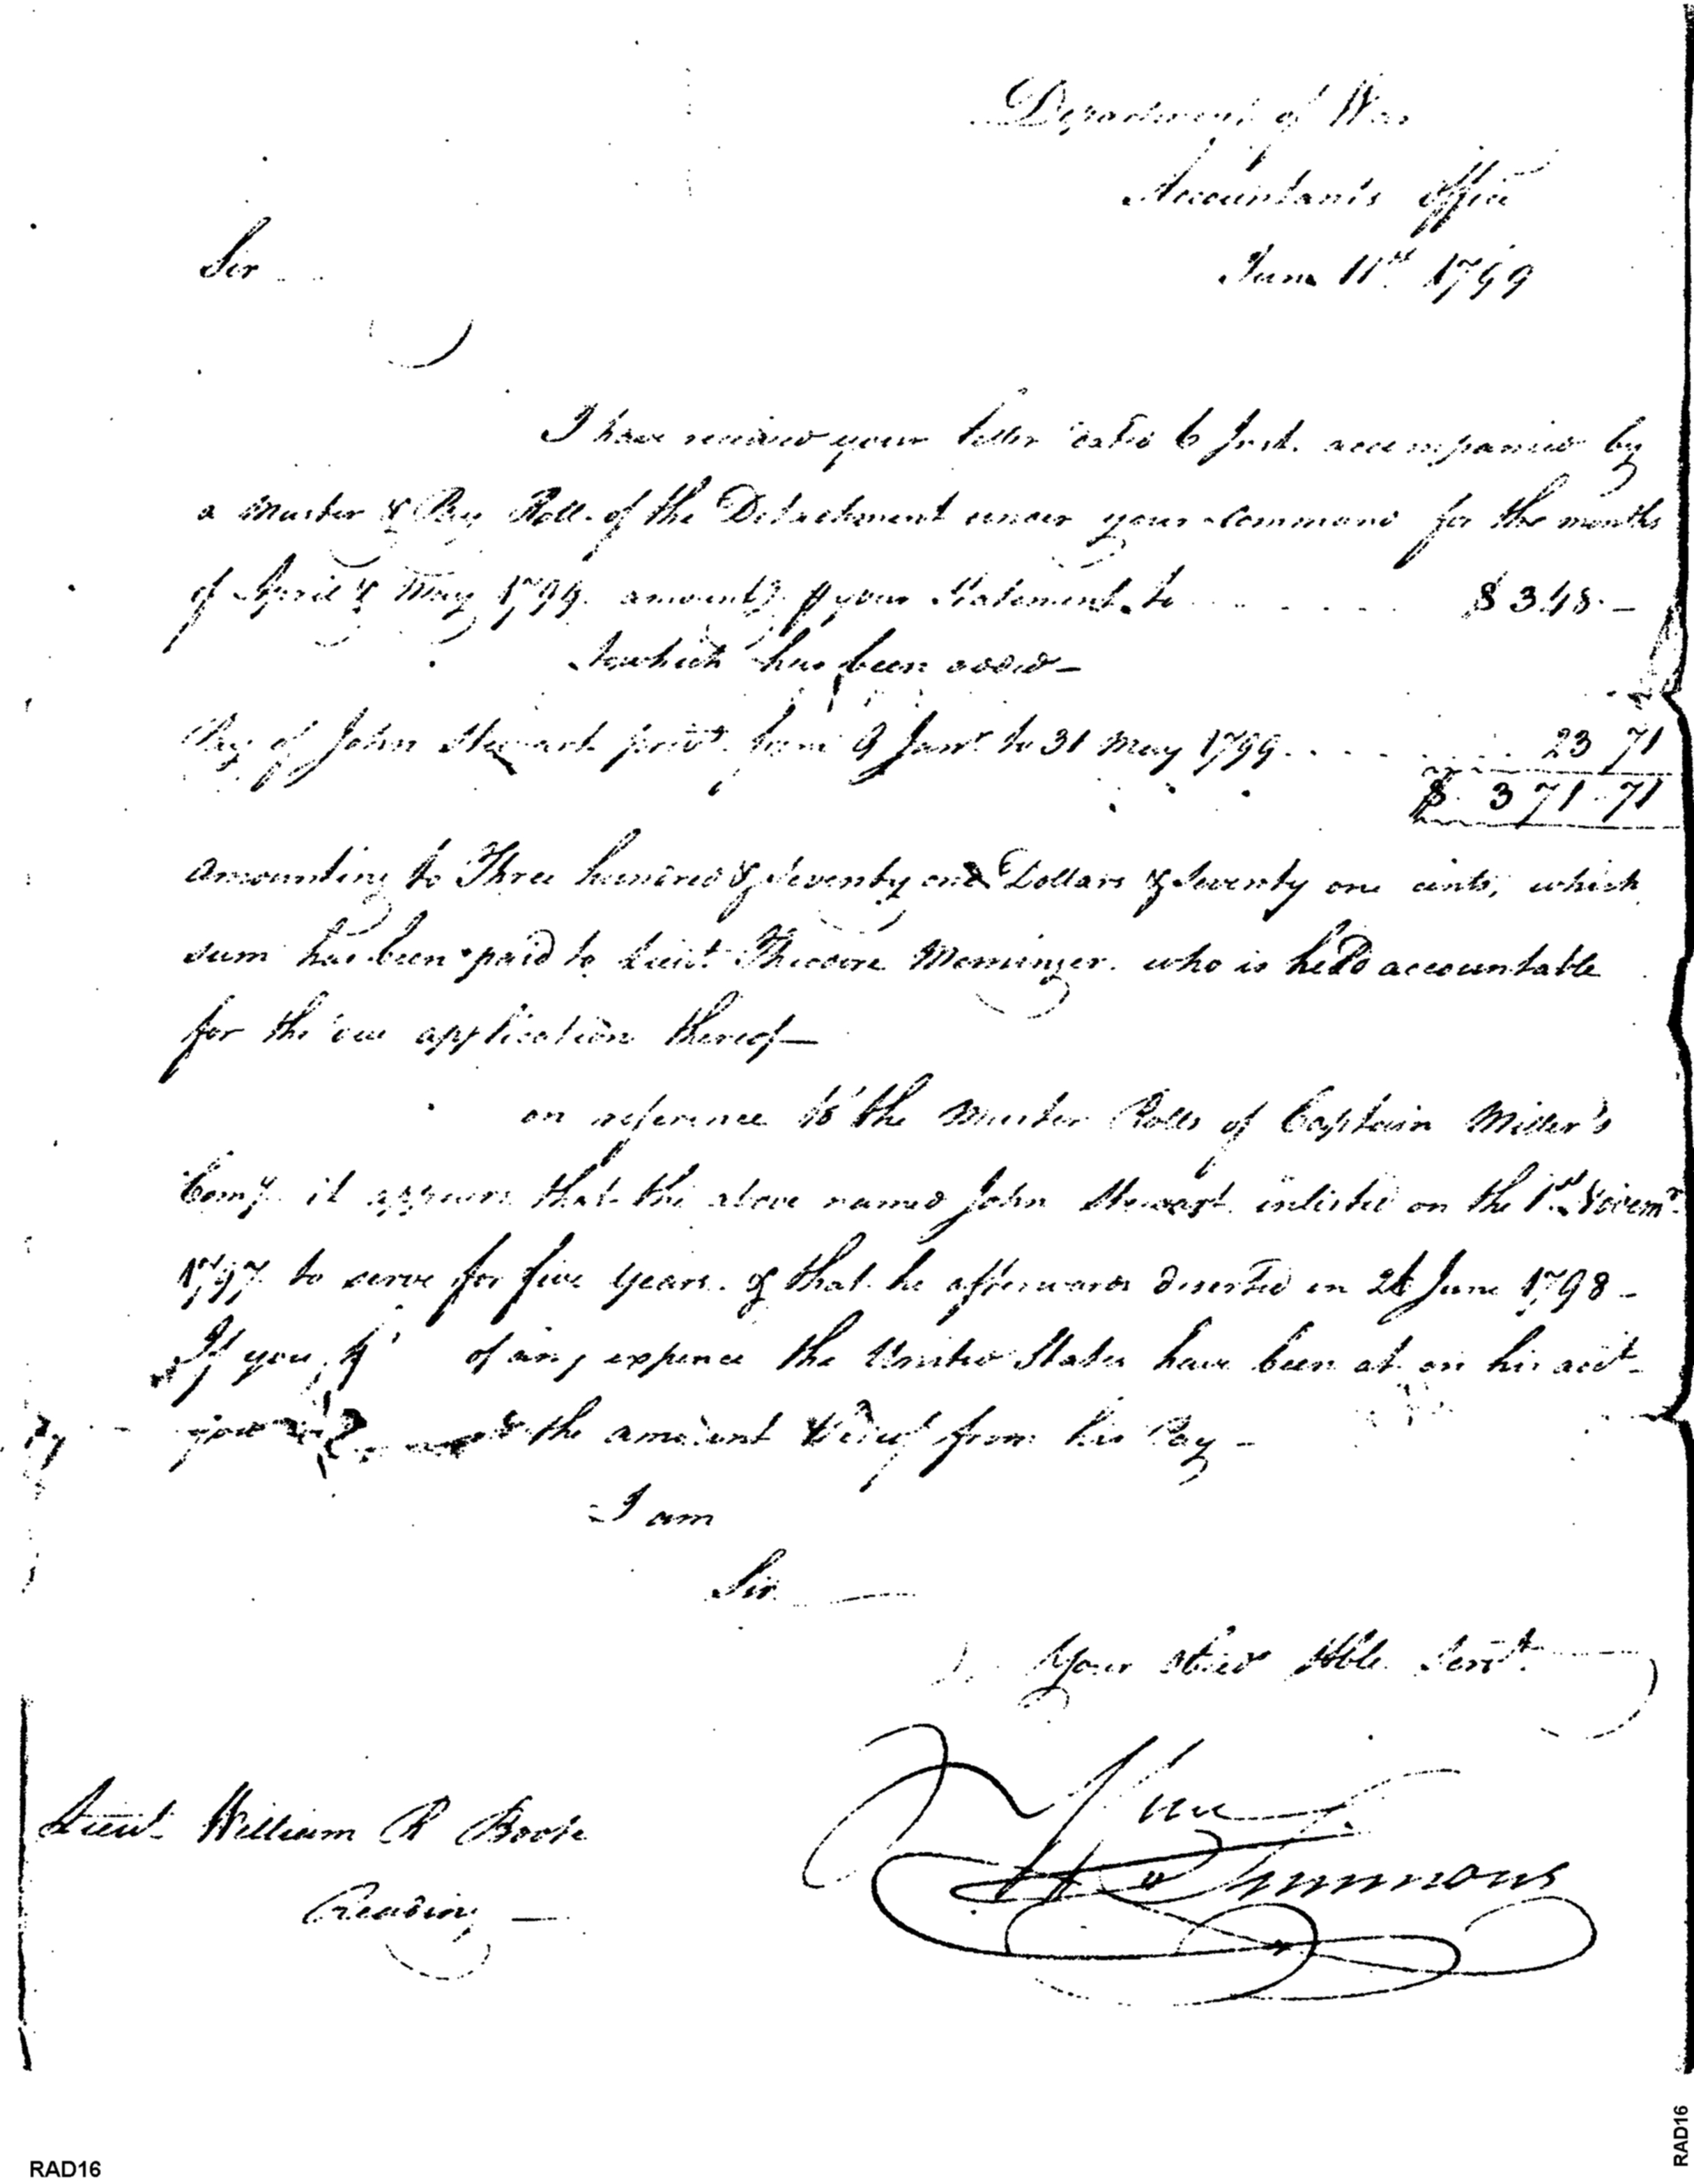 Department of War
Accountants Office
June 11th 1799
Sir
I have received your letter dated 6 Inst. accompanied by
a Muster & Pay Roll of the Detachment under your Command for the months
of April & May 1799. amountg. p your Statement to $348.—
To which has been added—
Pay of John Stewart privt. from 9 Jany. to 31 May 1799 23 71
$ 371.71
Amounting to Three hundred & Seventy one Dollars & Seventy one cents, which
sum has been paid to Lieut. Theodore Memminger. who is held accountable
for the due application thereof—
on reference to the Muster Rolls of Captain Miller's
Compy. it appears that the above named John Stewart inlisted on the 1st Novemr.
1797 to serve for five years. & that he afterwards deserted in June 1798—
If you of any expence the United States have been at on his acct.
you the amount deduct from his Pay—
I am
Sir
Your Obed Hble. Servt.
Wm Simmons
Lieut William R Boote
Reading—
RAD16
RAD16